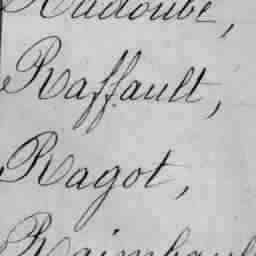 Radoube,
Raffault,
Ragot,
Raimbault